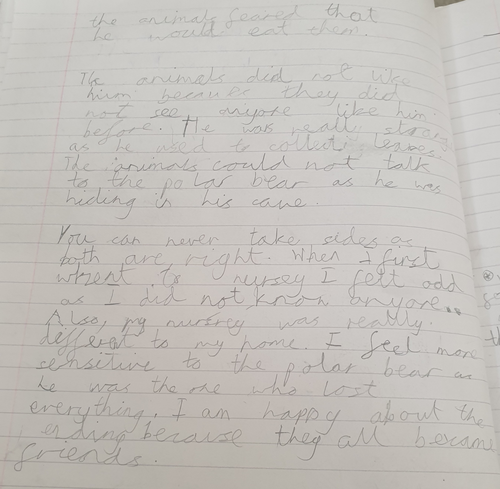 the animals feared that
he would eat them.
The animals did not like
him because they did
not see anyone like him
before. He was really strong
as he used to collect leaves.
The animals could not talk
to the polar bear as he was
hiding in his cave.
You can never take sides as
both are right. When I first
went to nursey I felt odd
as I did not know anyore..
Also, my nursrey was really
different to my home. I feel more
sensitive to the polar bear as
he was the one who lost
everything. I am happy about the
ending because they all became
friends.